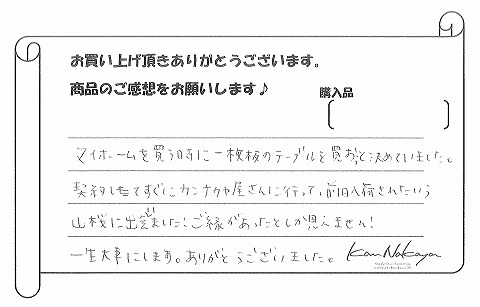 お買い上げ頂きありがとうございます。
商品のご感想をお願いします♪
購入品
マイホームを買う時に一枚板のテーブルを買おうと決めていました。
契約してすぐにカンナカヤ屋さんに行って、前日入荷されたという
山桜に出会えました!ご縁があったとしか思えません!
一生大事にします。ありがとうございました。
KanNakaya